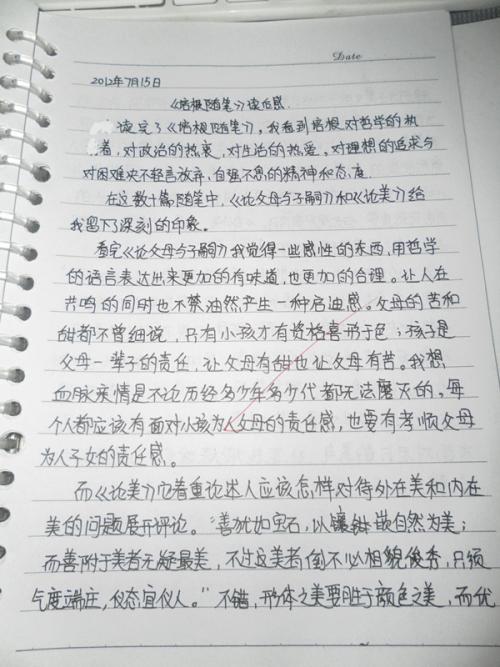 Date
2012年7月15日
《培根随笔》读后感.
读完了《培根随笔》，我看到培根对哲学的热
着，对政治的热衷，对生活的热爱，对理想的追求与
对困难决不轻言放弃，自强不息的精神和态度.
在这数十篇随笔中，《论父母与子嗣》和《论美》给
我留下了深刻的印象。
看完《论父母与子嗣》我觉得一些感性的东西，用哲学
的语言表达出来更加的有味道，也更加的合理。让人在
共鸣的同时也不禁油然产生一种启迪感。父母的苦和
甜都不曾细说，只有小孩才有资格喜形于色；孩子是
父母一辈子的责任，让父母有甜也让父母有苦。我想
血脉亲情是不论历经多少年多少代都无法磨灭的，每
个人都应该有面对小孩为人父母的责任感，也要有孝顺父母
为人子女的责任感。
而《论美》它着重论述人应该怎样对待外在美和内在
美的问题展开评论。“善犹如宝石，以镶嵌自然为美；
而善附于美者无疑最美，不过这美者倒不必相貌俊秀，只须
气度端庄，仪态宜人。”不错，形体之美要胜于颜色之美，而优